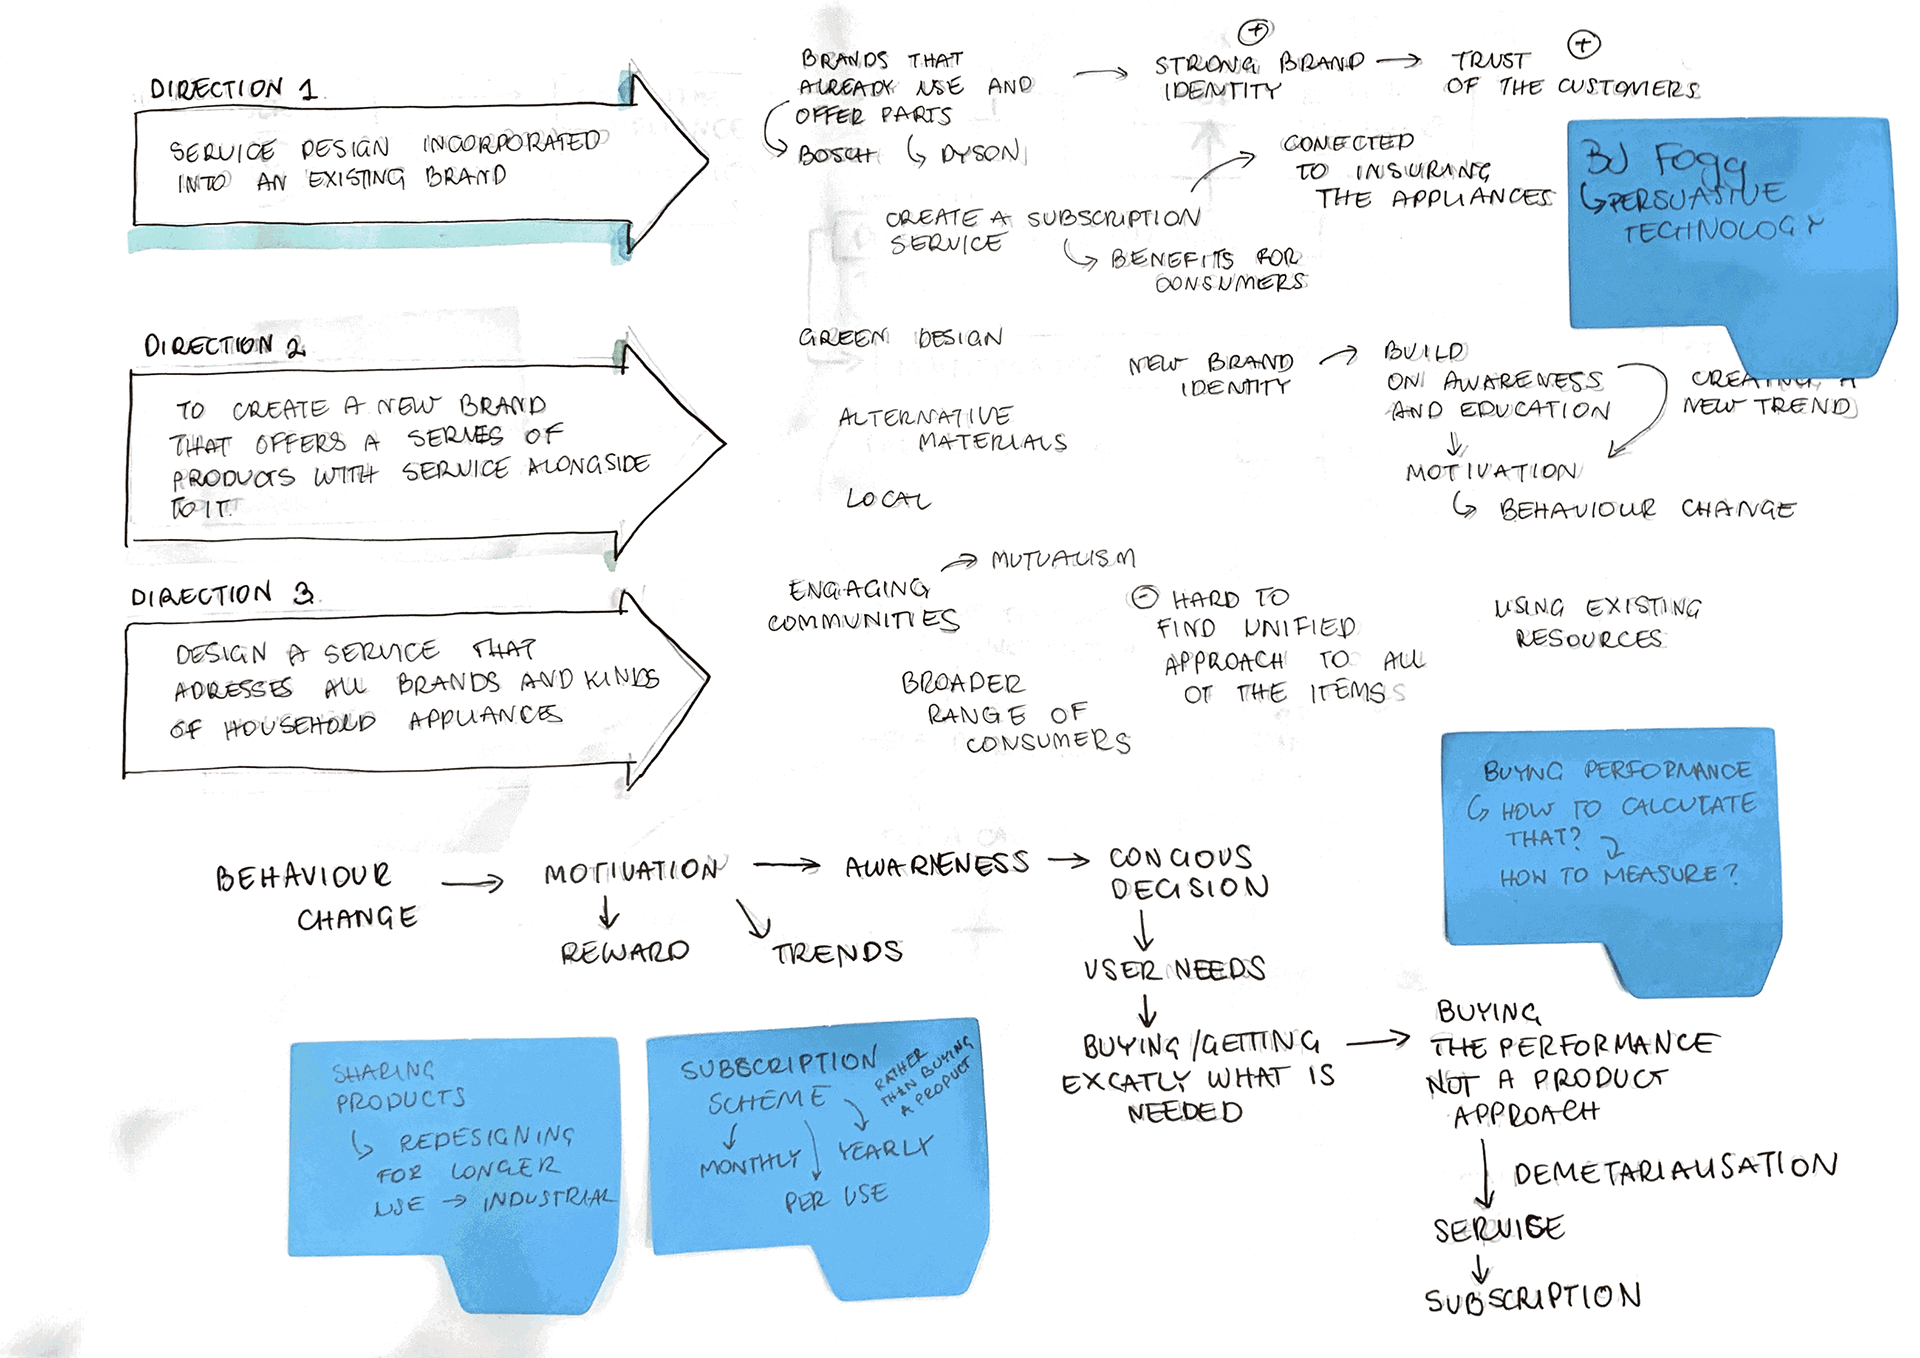 DIRECTION 1
SERVICE DESIGN INCORPORATED
INTO AN EXISTING BRAND
BRANDS THAT
ALREADY USE AND
OFFER PARTS
BOSCH
DYSON
STRONG BRAND
IDENTITY
TRUST
OF THE CUSTOMERS
CREATE A SUBSCRIPTION
SERVICE
CONECTED
TO INSURING
THE APPLIANCES
BENEFITS FOR
CONSUMERS
BJ Fogg
PERSUASIVE
TECHNOLOGY
DIRECTION 2
TO CREATE A NEW BRAND
THAT OFFERS A SERIES OF
PRODUCTS WITH SERVICE ALONGSIDE
TO IT.
GREEN DESIGN
ALTERNATIVE
MATERIALS
LOCAL
NEW BRAND
IDENTITY
BUILD
ON AWARENESS
AND EDUCATION
CREATING A
NEW TREND
MOTIVATION
BEHAVIOUR CHANGE
DIRECTION 3
DESIGN A SERVICE THAT
ADRESSES ALL BRANDS AND KINDS
OF HOUSEHOLD APPLIANCES
ENGAGING
COMMUNITIES
MUTUALISM
BROADER
RANGE OF
CONSUMERS
HARD TO
FIND UNIFIED
APPROACH TO ALL
OT THE ITEMS
USING EXISTING
RESOURCES
BUYING PERFORMANCE
HOW TO CALCULATE
THAT?
HOW TO MEASURE?
BEHAVIOUR
CHANGE
MOTIVATION
REWARD
TRENDS
AWARENESS
CONCIOUS
DECISION
USER NEEDS
BUYING/GETTING
EXCATLY WHAT IS
NEEDED
BUYING
THE PERFORMANCE
NOT A PRODUCT
APPROACH
DEMETARIALISATION
SERVICE
SUBSCRIPTION
SHARING
PRODUCTS
REDESIGNING
FOR LONGER
USE → INDUSTRIAL
SUBSCRIPTION
SCHEME
RATHER
THAN BUYING
A PRODUCT
MONTHLY
YEARLY
PER USE